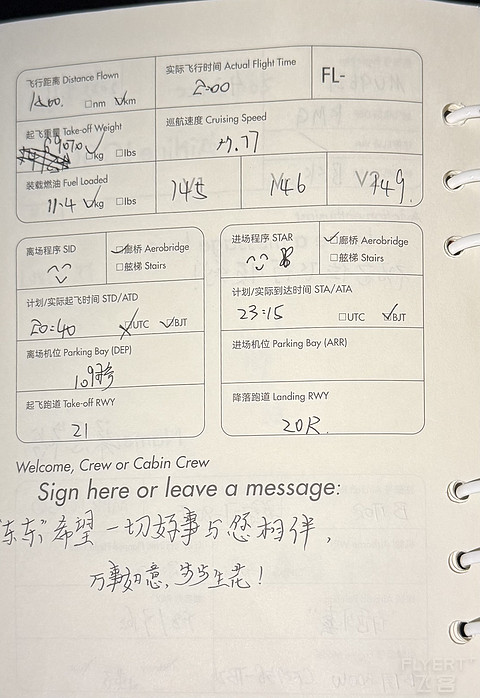 飞行距离 Distance Flown
1200. □nm ☑km
实际飞行时间 Actual Flight Time
2:00
FL-
起飞重量 Take-off Weight
69070 ☑kg □lbs
巡航速度 Cruising Speed
M.77
装载燃油 Fuel Loaded
11.4 ☑kg □lbs
145
146
V 149.
离场程序 SID
☑廊桥 Aerobridge
□舷梯 Stairs
进场程序 STAR
☑廊桥 Aerobridge
□舷梯 Stairs
计划/实际起飞时间 STD/ATD
20:40 UTC ☑BJT
计划/实际到达时间 STA/ATA
23:15 □UTC ☑BJT
离场机位 Parking Bay (DEP)
109
进场机位 Parking Bay (ARR)
起飞跑道 Take-off RWY
21
降落跑道 Landing RWY
20R.
Welcome, Crew or Cabin Crew
Sign here or leave a message:
"东东"希望一切好事与您相伴，
万事如意，步步生花！
FLYERT
飞客